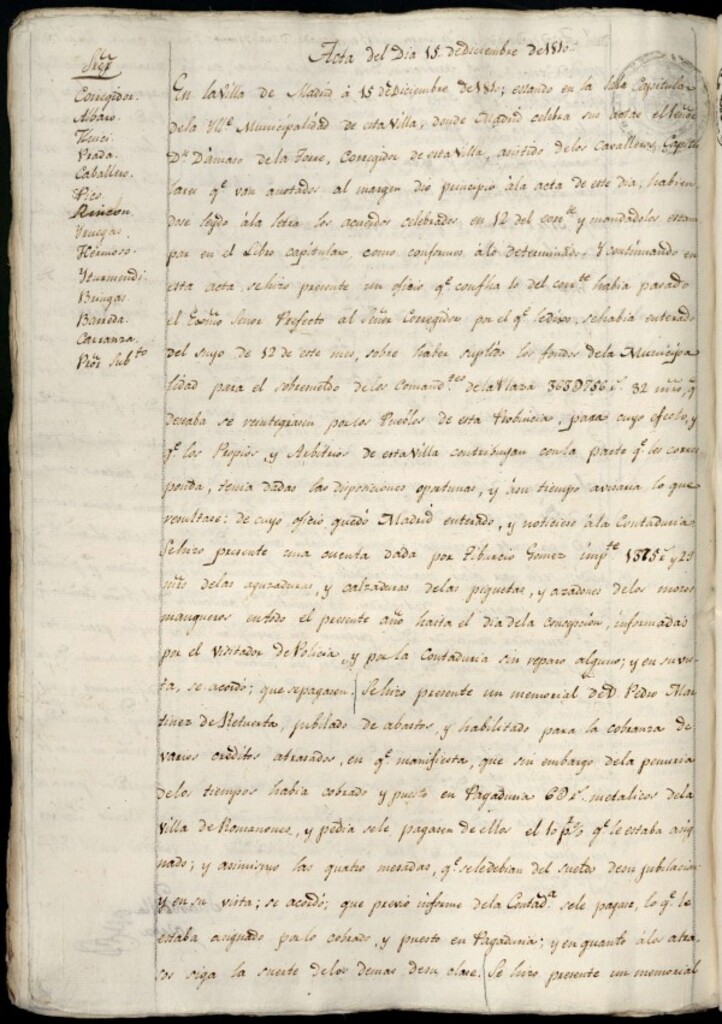 Acta del Dia 15 de Diciembre de 1810
Sres
Corregidor.
Albaro.
Prada.
Caballero.
Pico.
Rincon.
Venegas.
Hermoso.
Yturmendi.
Bringas.
Barreda.
Carranza.
Pror Subto
En la Villa de Madrid á 15 de Diciembre de 1810; estando en la Sala Capitular
de la Ylle Municipalidad de esta Villa, donde Madrid celebra sus actas el Señor
Dn Dámaso de la Torre, Corregidor de esta Villa, asistido de los Cavalleros Capitu
lares qe van anotados al margen dio principio á la acta de este dia, habien
dose leydo á la letra los acuerdos celebrados en 12 del corrte y mandadolos estam
par en el Libro capitular, como conformes á lo determinado. Y continuando en
esta acta se hizo presente un oficio qe con fha 10 del corrte habia pasado
el Exmo Señor Prefecto al Señor Corregidor por el qe le dice, se habia enterado
del suyo de 12 de este mes, sobre haber suplido los fondos de la Municipa
lidad para el sobresueldo de los Comandtes de la Plaza 363D756 rs 32 mrs, qe
deseaba se reintegrasen por los Pueblos de esta Provincia, para cuyo efecto, y
qe los Propios, y Arbitrios de esta Villa contribuyan con la parte qe les corres
ponda, tenia dadas las disposiciones oportunas, y á su tiempo avisaria lo que
resultase: de cuyo oficio quedó Madrid enterado, y noticiese á la Contaduria.
Se hizo presente una cuenta dada por Tiburcio Gomez impte 1375 rs y 29
mrs de las aguzaduras, y calzaduras de las piquetas, y azadones de los mozos
mangueros en todo el presente año hasta el dia de la concepcion, informada
por el Visitador de Policia, y por la Contaduria sin reparo alguno; y en su vis
ta, se acordó; que se pagasen. Se hizo presente un memorial de D. Pedro Mar
tinez de Retuerta, jubilado de abastos, y habilitado para la cobranza de
varios creditos atrasados, en qe manifiesta, que sin embargo de la penuria
de los tiempos habia cobrado y puesto en Pagaduria 6D rs metalicos de la
Villa de Romanones, y pedia se le pagasen de ellos el 10 p% qe le estaba asig
nado; y asimismo las quatro mesadas, qe se le debian del sueldo de su jubilacion
y en su vista; se acordó; que previo informe de la Contada se le pagase, lo qe le
estaba asignado por lo cobrado, y puesto en Pagaduria; y en quanto á los atra
sos siga la suerte de los demas de su clase. Se hizo presente un memorial